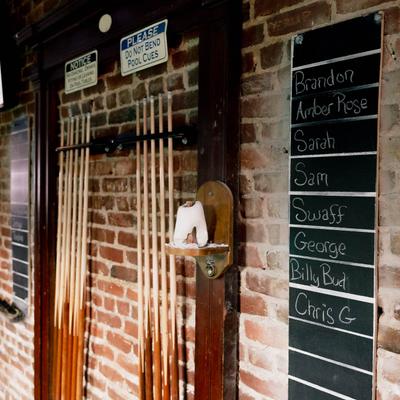 NOTICE
PLEASE
DO NOT BEND
POOL CUES
Brandon
Amber Rose
Sarah
Sam
Swaff
George
Billy Bud
Chris G